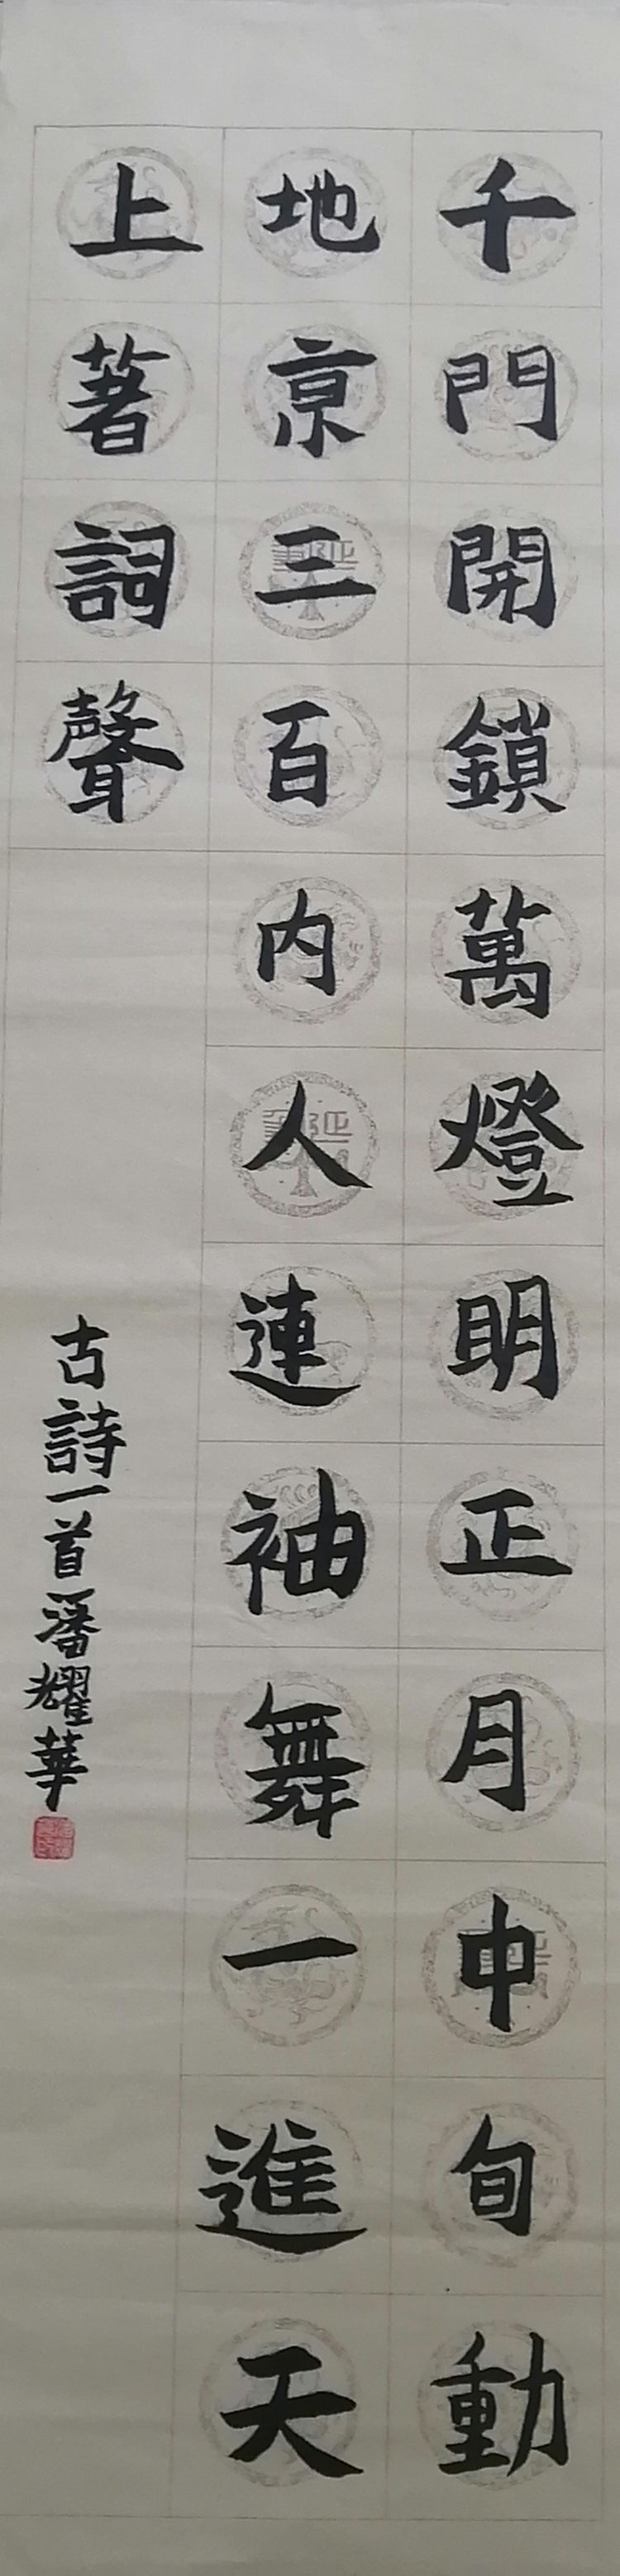 千門開鎖萬燈明正月中旬動
地京三百内人連袖舞一進天
上著詞聲
古詩一首潘耀華